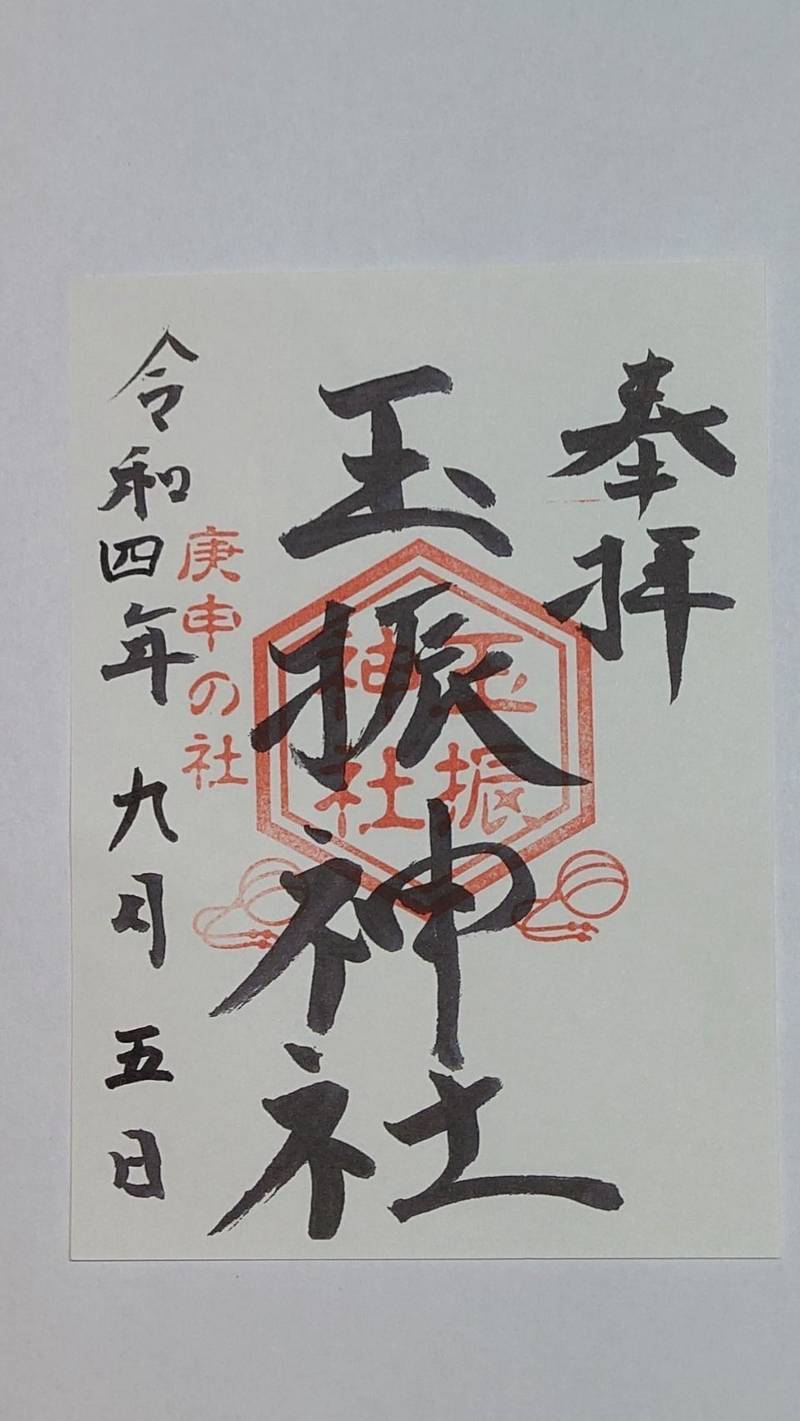 奉拝
玉振神社
玉振
神社
庚申の社
令和四年九月五日